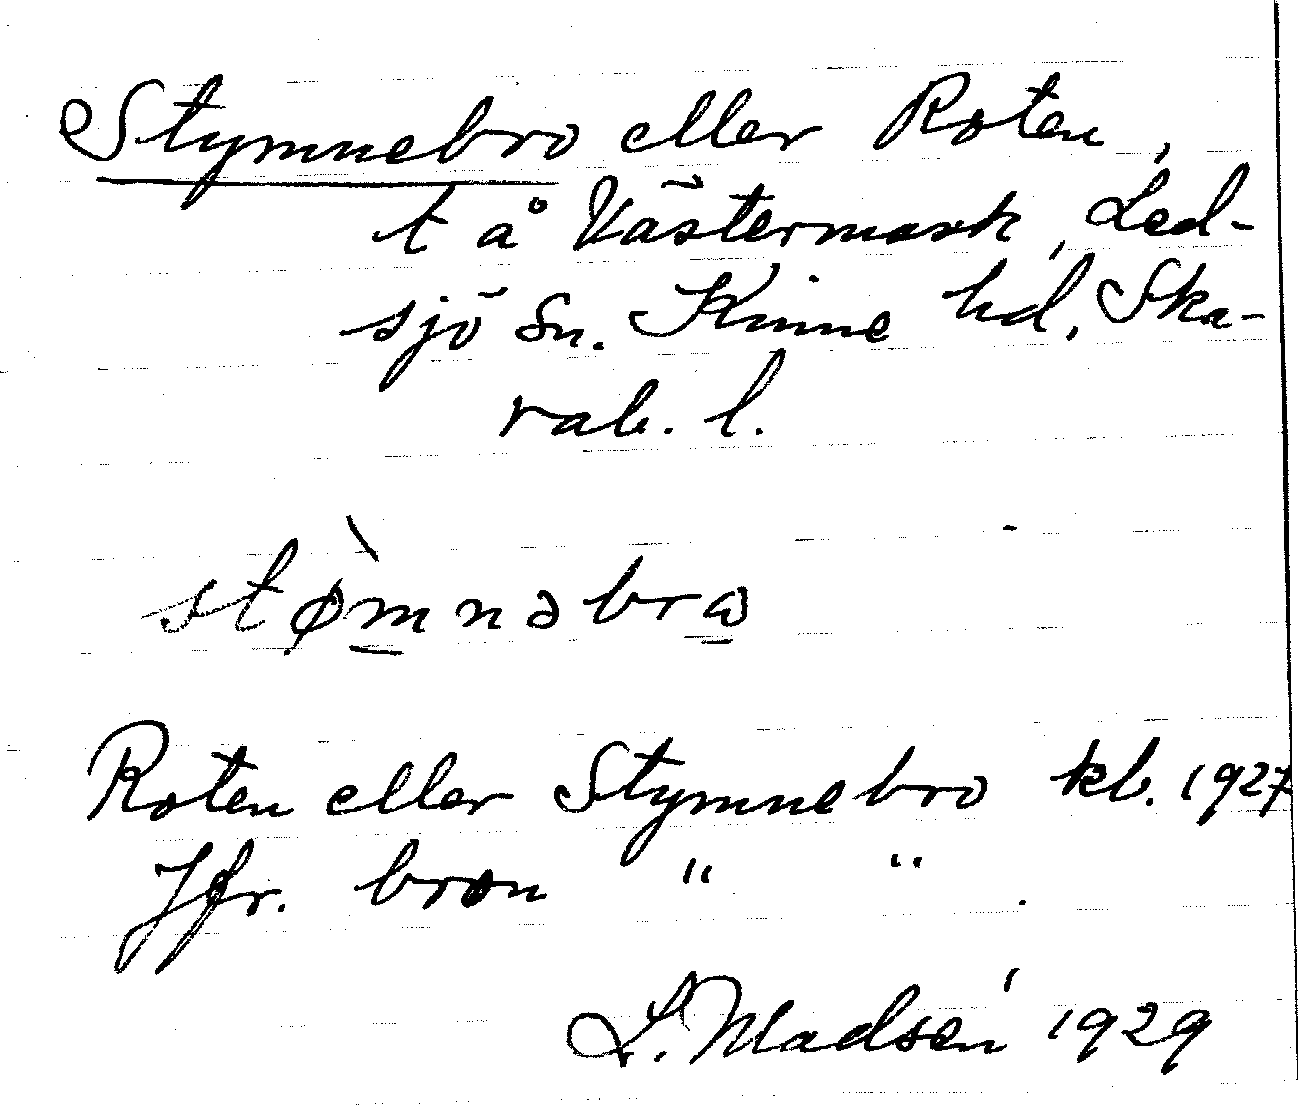 Stymnebro eller Roten,
t å Västermark, Led-
sjö Sn. Kinne hd, Ska-
rab. l.
stø̀mnəbrɷ
Roten eller Stymnebro kb. 1927
Jfr. bron " " .
L. Madsén 1929